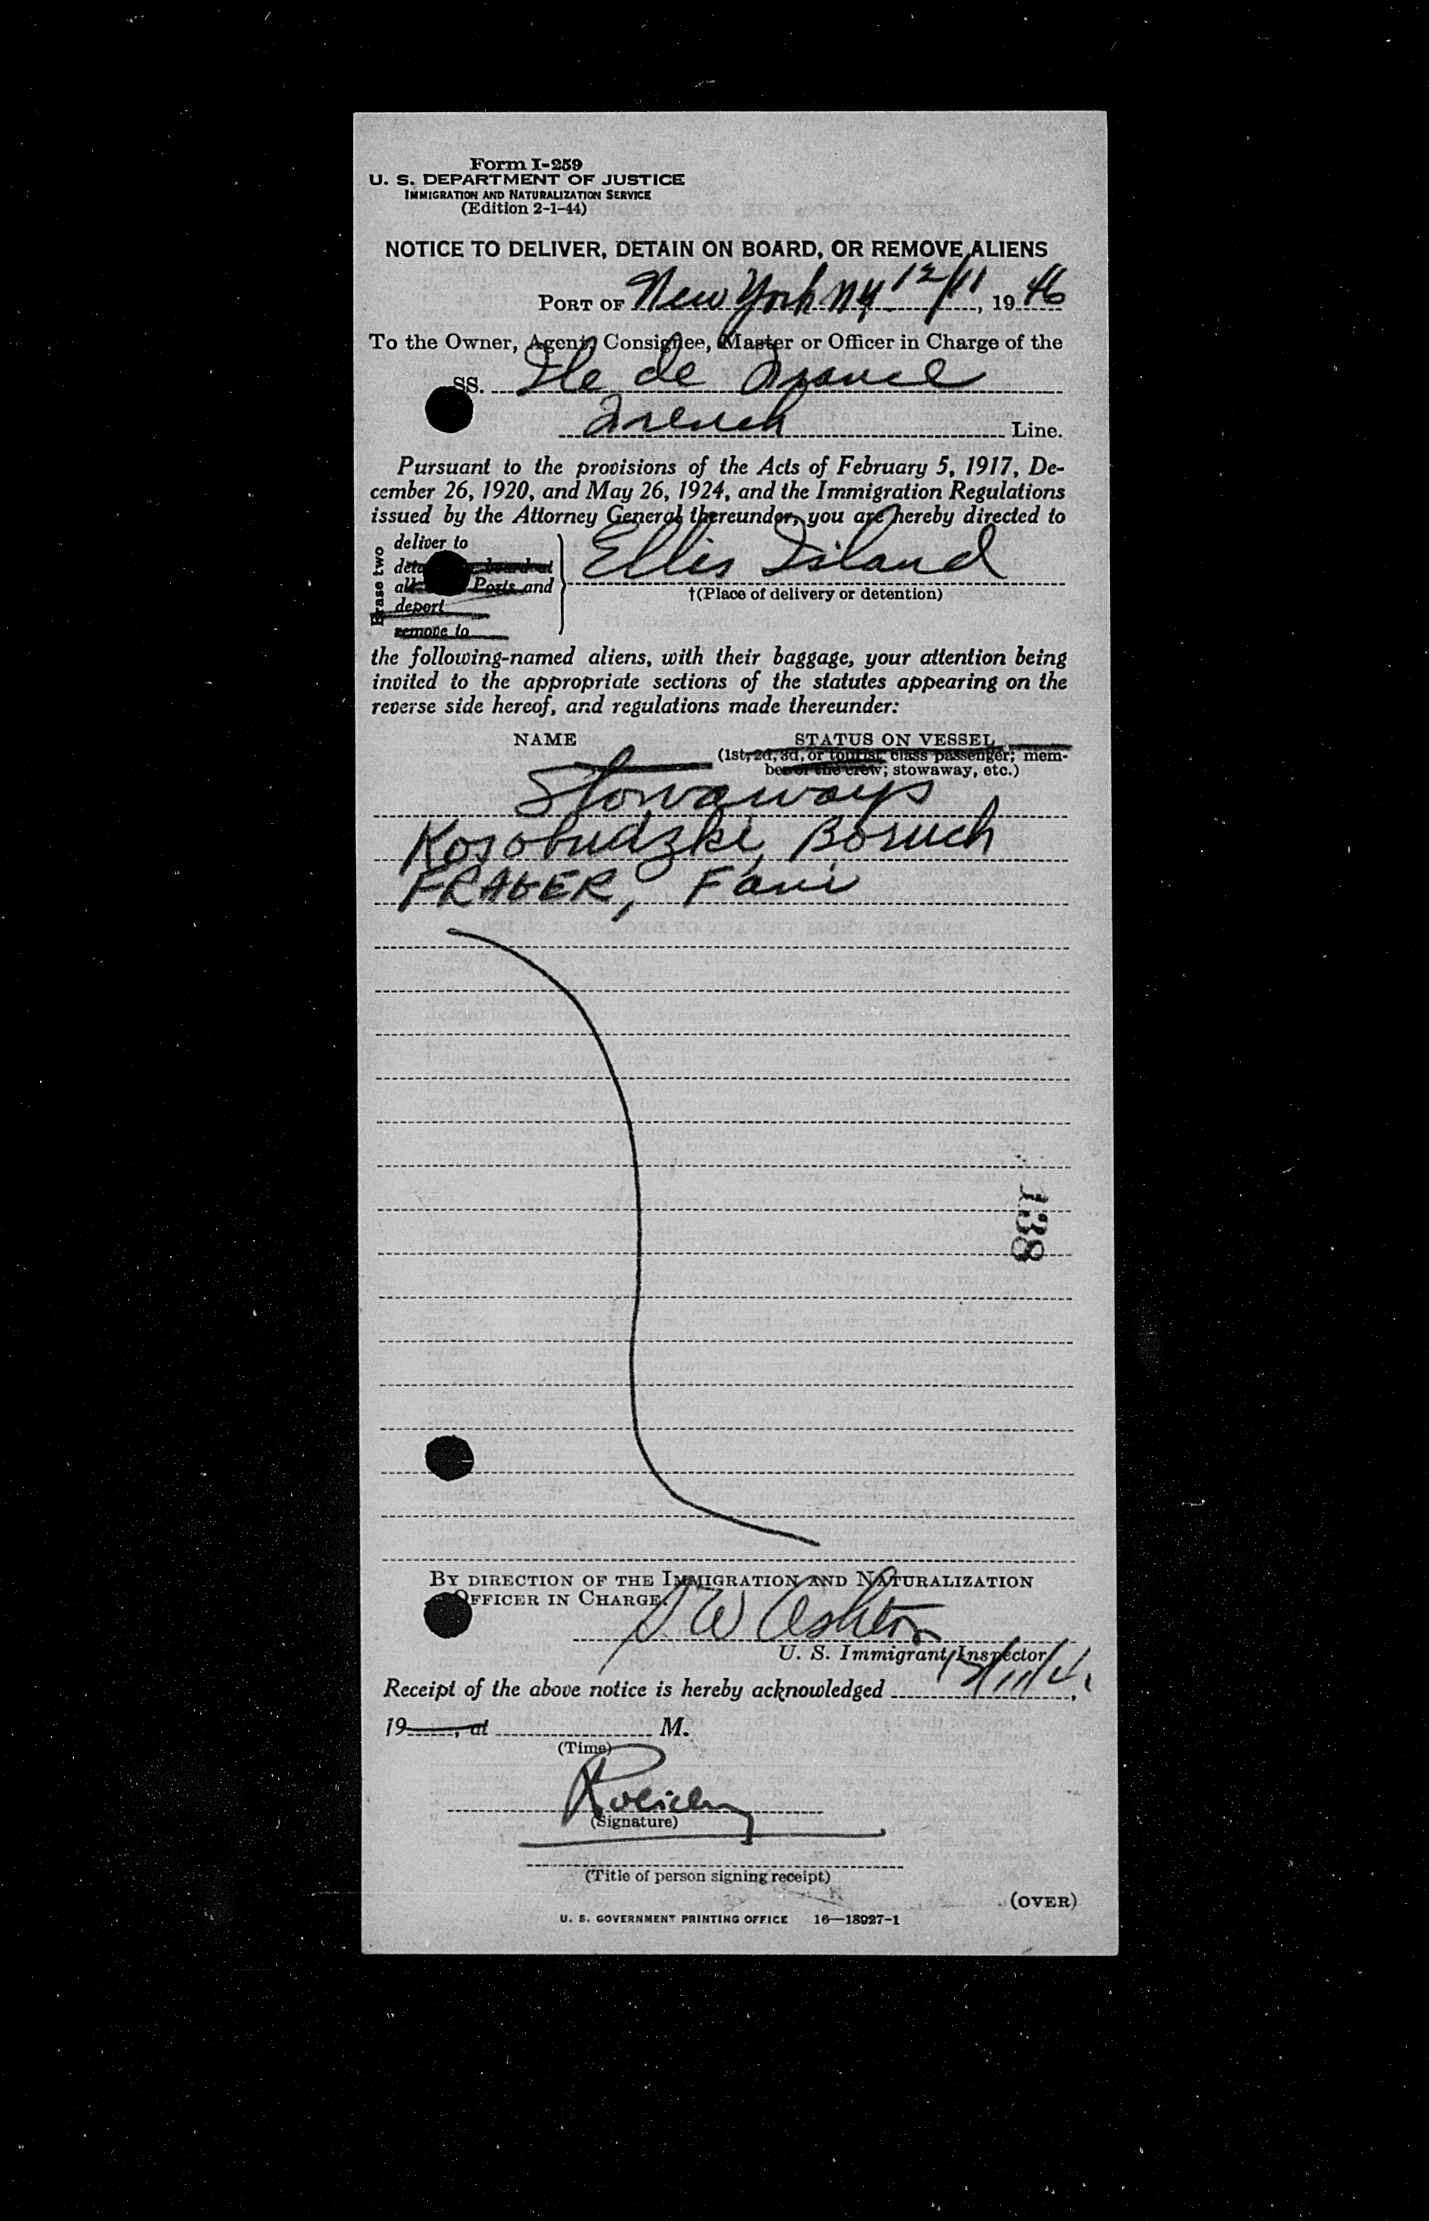 Form I-259
U. S. DEPARTMENT OF JUSTICE
IMMIGRATION AND NATURALIZATION SERVICE
(Edition 2-1-44)
NOTICE TO DELIVER, DETAIN ON BOARD, OR REMOVE ALIENS
PORT OF New York NY. 12/11, 1946
To the Owner, Agent, Consignee, Master or Officer in Charge of the
SS. Ile de France
French Line.
Pursuant to the provisions of the Acts of February 5, 1917, De-
cember 26, 1920, and May 26, 1924, and the Immigration Regulations
issued by the Attorney General thereunder, you are hereby directed to
Erase two
deliver to
board at
Ports and
deport
remove to
Ellis Island
†(Place of delivery or detention)
the following-named aliens, with their baggage, your attention being
invited to the appropriate sections of the statutes appearing on the
reverse side hereof, and regulations made thereunder:
NAME STATUS ON VESSEL
(1st, 2d, 3d, or tourist class passenger; mem-
ber of the crew; stowaway, etc.)
Stowaways
Kosobudzki, Boruch
FRAGER, Fani
138
BY DIRECTION OF THE IMMIGRATION AND NATURALIZATION
OFFICER IN CHARGE.
W Ashton
U. S. Immigrant Inspector
Receipt of the above notice is hereby acknowledged 12/11/4
19 , at M.
(Time)
(Signature)
(Title of person signing receipt)
(OVER)
U. S. GOVERNMENT PRINTING OFFICE 16—18927-1